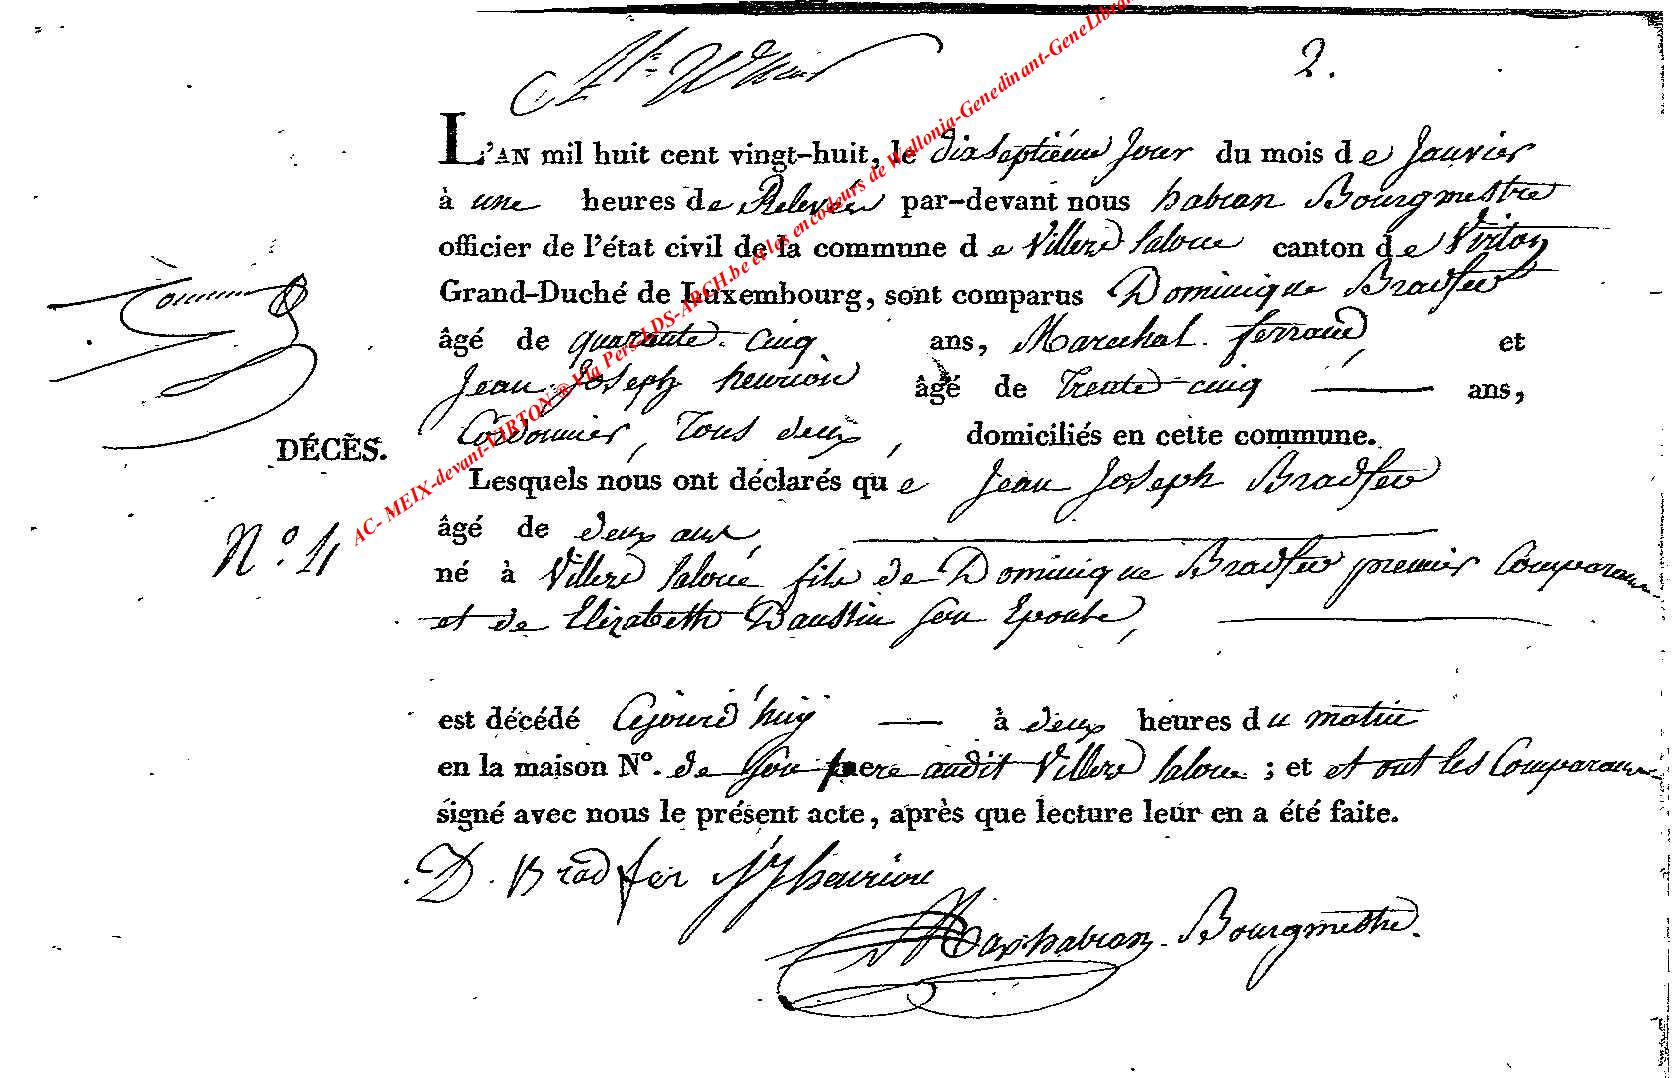 2.
L'AN mil huit cent vingt-huit, le dixseptiéme Jour du mois de Janvier
à une heures de Relevée par-devant nous habran Bourgmestre
officier de l'état civil de la commune de Villers laloue canton de Virton
Grand-Duché de Luxembourg, sont comparus Dominique Bradfer
âgé de quarante cinq ans, Marechal ferrand, et
Jean Joseph henrion âgé de Trente cinq ans,
Cordonnier, Tous deux, domiciliés en cette commune.
DÉCÈS.
Lesquels nous ont déclarés que Jean Joseph Bradfer
N.o 4
âgé de deux ans,
né à Villers laloue, fils de Dominique Bradfer premier Comparant
et de Elizabeth Daustin son Epouse,
est décédé Cejourd'huy à deux heures du matin
en la maison No. de son pere audit Villers laloue ; et et ont les Comparans
signé avec nous le présent acte, après que lecture leur en a été faite.
D. Bradfer JJ henrion
habran Bourgmestre.
AC- MEIX-devant-VIRTON @ Via Pers-LDS-ARCH.be et les encodeurs de Wallonia-Genedinant-GeneLibra